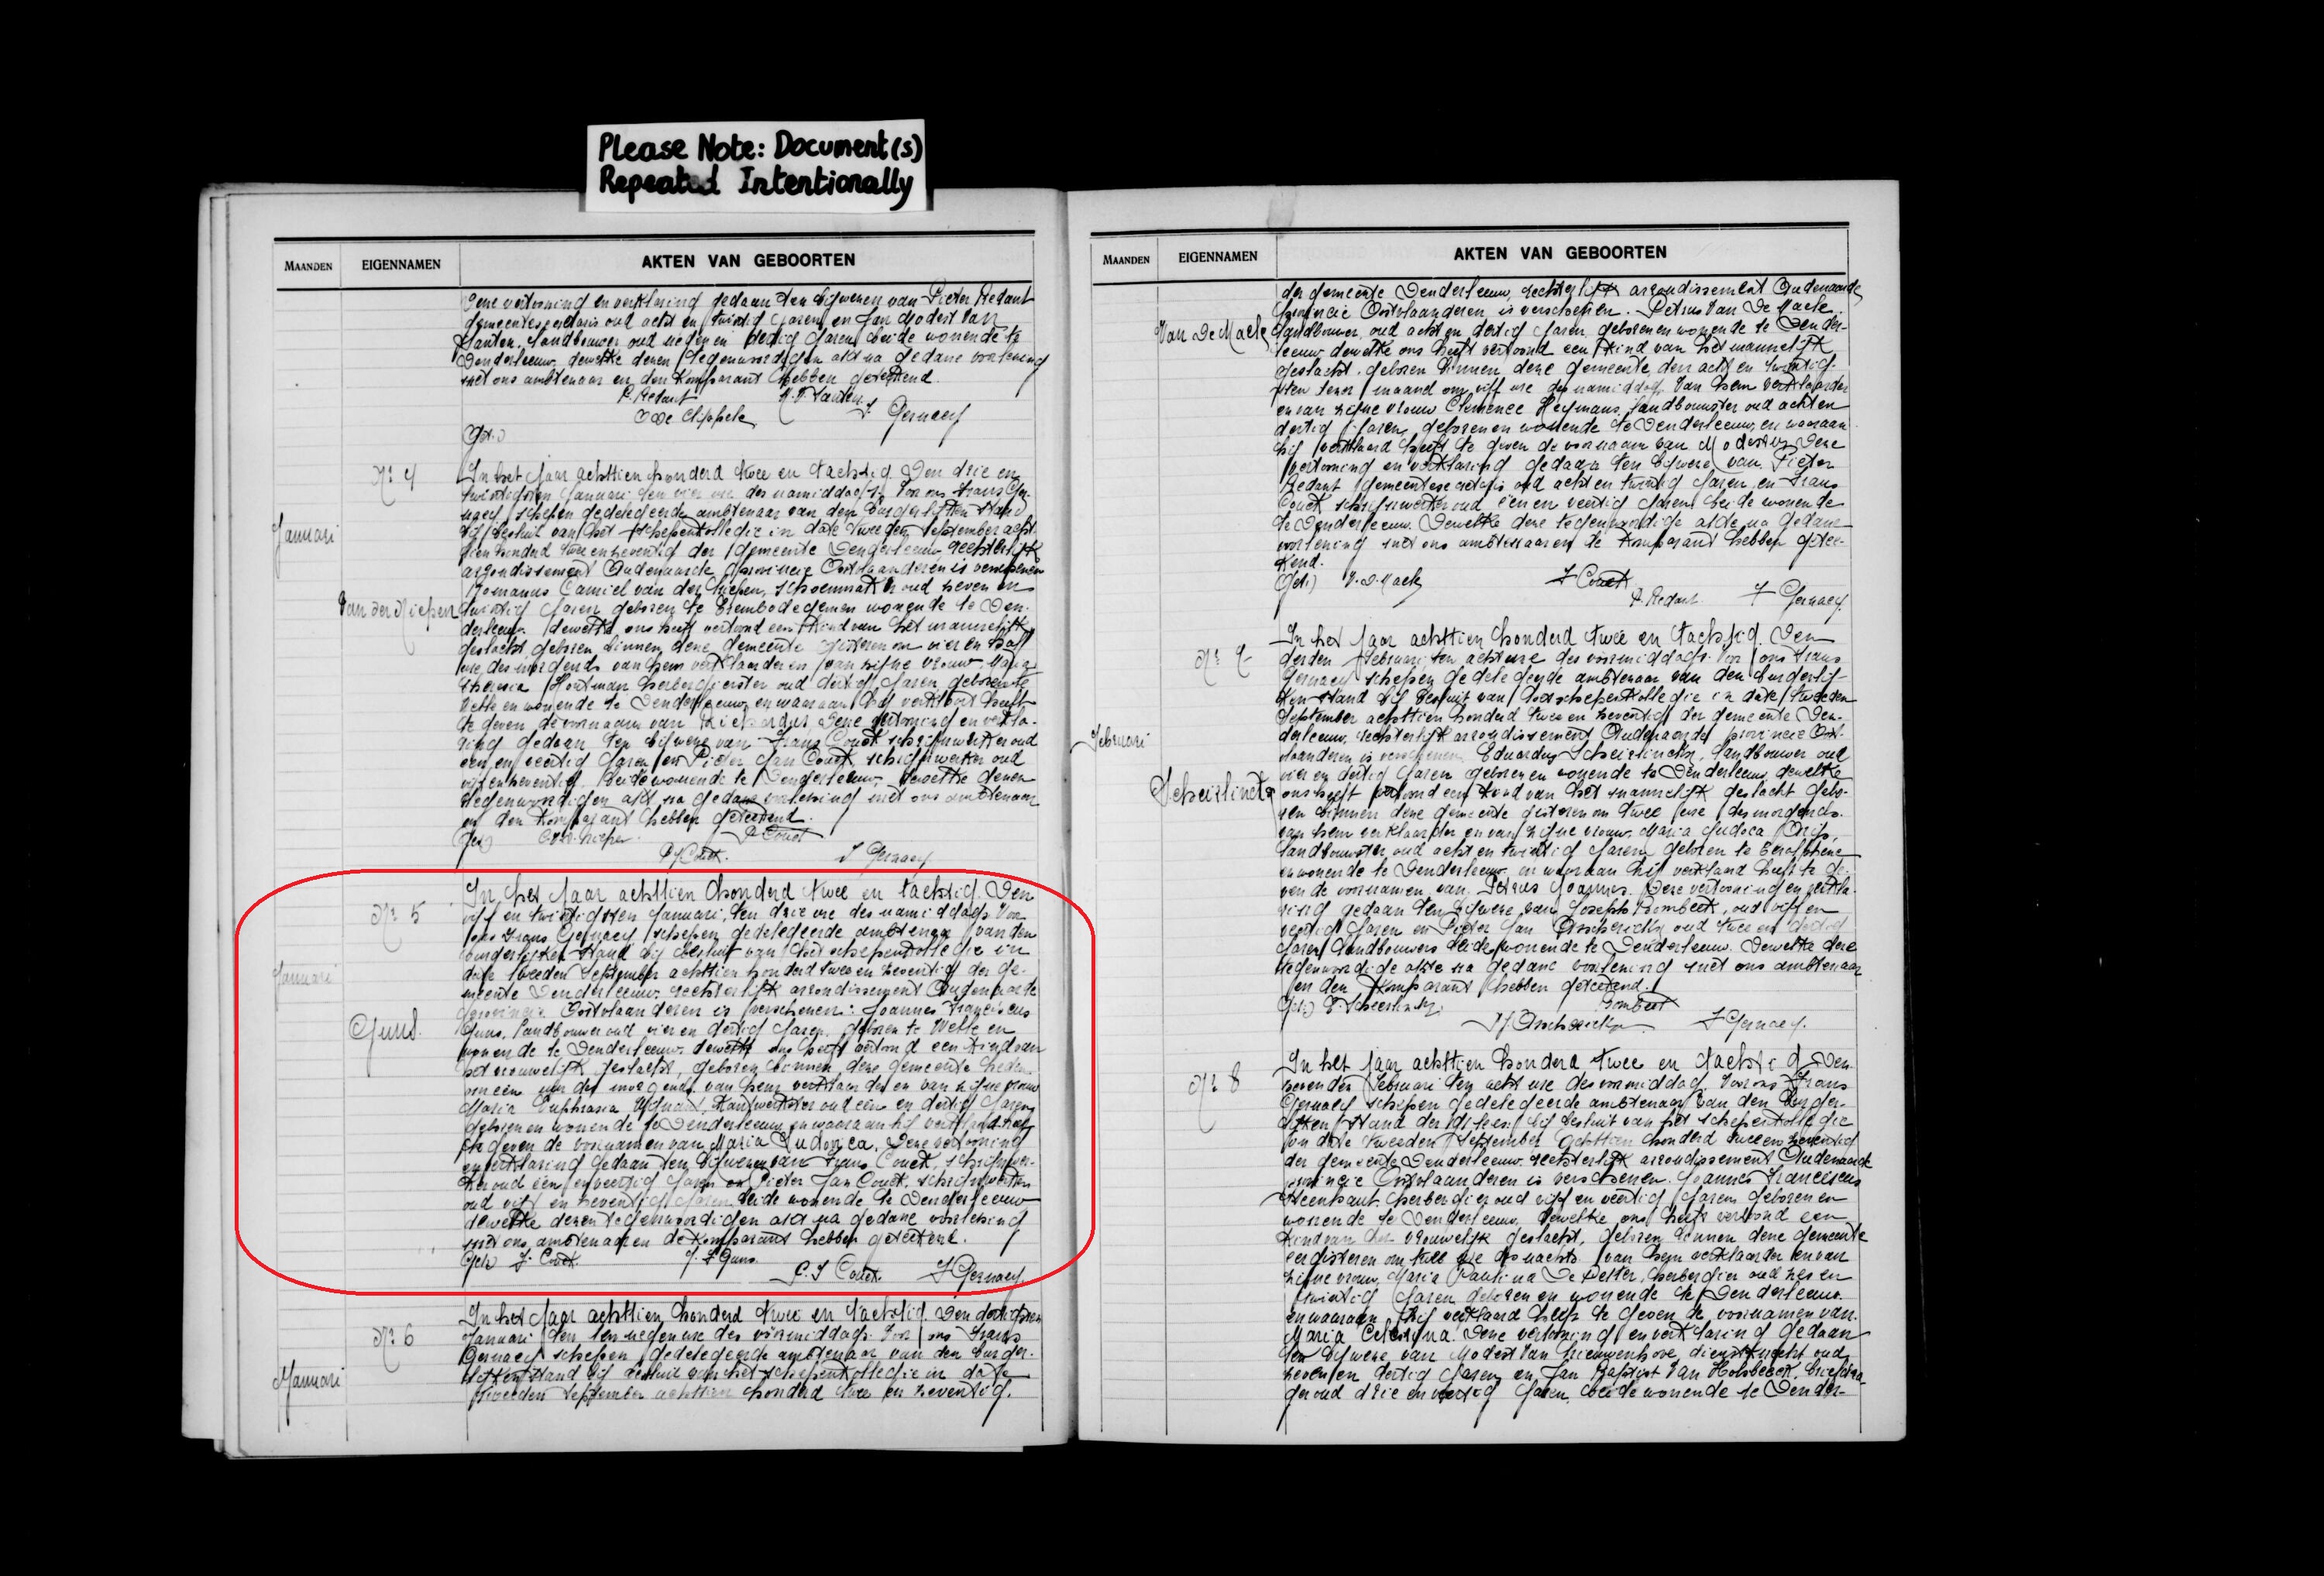 Please Note: Document(s)
Repeated Intentionally
MAANDEN EIGENNAMEN AKTEN VAN GEBOORTEN
Deze vertooning en verklaring gedaan ten bijwezen van Pieter Redant
gemeentesecretaris oud acht en twintig jaren en Jan Modest Van
Santen, landbouwer oud negen en dertig jaren beide wonende te
Denderleeuw, dewelke dezen tegenwoordigen akt na gedane voorlezing
met ons ambtenaar en den komparant hebben geteekend.
P. Redant M. V. Santen
De Clippele F. Gernaey
Get.)
Nr 4
In het jaar achttien honderd twee en tachtig. Den drie en
twintigsten Januari, ten vier ure des namiddags, voor ons Frans Ger-
naey schepen gedelegeerde ambtenaar van den burgerlijken stand
bij besluit van het schepenkollegie in date tweeden september acht-
tien honderd twee en zeventig der gemeente Denderleeuw rechterlijk
Januari
arrondissement Oudenaarde provincie Oostvlaanderen is verschenen
Romanus Camiel van der Niepen, schoenmaker oud zeven en
Van der Niepen
twintig jaren geboren te Erembodegem en wonende te Den-
derleeuw, dewelke ons heeft vertoond een kind van het mannelijk
geslacht, geboren binnen deze gemeente gisteren om vier en half
ure des morgends van hem verklaarder en van zijne vrouw Maria
Theresia Hortman herbergierster oud dertig jaren geboren te
Welle en wonende te Denderleeuw en waaraan hij verklaart heeft
te geven de voornaam van Richardus Deze vertooning en verkla-
ring gedaan ten bijwezen van Frans Couck schrijnwerker oud
een en veertig jaren en Pieter Jan Couck, schrijnwerker oud
vijf en zeventig beide wonende te Denderleeuw dewelke dezen
tegenwoordigen akt na gedane voorlezing met ons ambtenaar
en den komparant hebben geteekend.
Get.) F. Couck
P. J. Couck. F Gernaey
Nr 5
In het jaar achttien honderd twee en tachtig. Den
vijf en twintigsten Januari, ten drie ure des namiddags. Voor
ons Frans Gernaey schepen gedelegeerde ambtenaar van den
burgerlijken stand bij besluit van het schepenkollegie in
Januari
date tweeden September achttien honderd twee en zeventig der ge-
meente Denderleeuw rechterlijk arrondissement Oudenaarde
provincie Oostvlaanderen is verschenen: Joannes Franciscus
Guns.
Guns, landbouwer oud vier en dertig jaren, geboren te Welle en
wonende te Denderleeuw. dewelke ons heeft vertoond een kind van
het vrouwelijk geslacht, geboren binnen deze gemeente heden
om een ure des morgends van hem verklaarder en van zijne vrouw
Maria Euphrasia kantwerkster oud een en dertig jaren
geboren en wonende te Denderleeuw en waaraan hij verklaard heeft
te geven de voornamen van Maria Ludovica. Deze vertooning
en verklaring gedaan ten bijwezen van Frans Couck, schrijnwer-
ker oud een en veertig jaren en Pieter Jan Couck, schrijnwerker
oud vijf en zeventig jaren beide wonende te Denderleeuw
dewelke dezen tegenwoordigen akt na gedane voorlezing
met ons ambtenaar en de komparant hebben geteekend.
Get) F. Couck. J. F Guns.
P. J Couck. F Gernaey
Nr 6
In het jaar achttien honderd twee en tachtig. Den dertigsten
Januari ten negen ure des vóormiddags. Voor ons Frans
Gernaey schepen gedelegeerde ambtenaar van den burger-
Januari
lijken stand bij besluit van het schepenkollegie in date
tweeden September achttien honderd twee en zeventig.
MAANDEN EIGENNAMEN AKTEN VAN GEBOORTEN
der gemeente Denderleeuw, rechterlijk arrondissement Oudenaarde
provincie Oostvlaanderen is verschenen. Petrus Van De Maele.
Van De Maele
landbouwer, oud acht en dertig jaren geboren en wonende te Dender-
leeuw dewelke ons heeft vertoond een kind van het mannelijk
geslacht. geboren binnen deze gemeente, den acht en twintig-
sten dezer maand om vijf ure des namiddags. Van hem verklaarder
en van zijne vrouw Clemence Heymans, landbouwster oud acht en
dertig jaren, geboren en wonende te Denderleeuw, en waaraan
hij verklaard heeft te geven de voornaam van Modestus Deze
vertooning en verklaring gedaan ten bijweze van Pieter
Redant gemeentesecretaris oud acht en twintig jaren en Frans
Couck schrijnwerker oud een en veertig jaren beide wonende
te Denderleeuw. Dewelke deze tegenwoordige akte na gedane
voorlezing met ons ambtenaar en de komparant hebben getee-
kend.
Get.) F Couck
P. Redant F Gernaey
In het jaar achttien honderd twee en tachtig. Den
derden Februari, ten acht ure des voormiddags. Voor ons Frans
Gernaey schepen gedelegeerde ambtenaar van den burgerlij-
ken stand bij besluit van het schepenkollegie in date tweeden
September achttien honderd twee en zeventig der gemeente Den-
Februari
derleeuw, rechterlijk arrondissement Oudenaarde provincie Oost-
vlaanderen is verschenen Eduardus Scheirlinckx, landbouwer oud
vier en dertig jaren geboren en wonende te Denderleeuw, dewelke
Scheirlinckx
ons heeft vertoond een kind van het mannelijk geslacht gebo-
ren binnen deze gemeente gisteren om twee ure des morgends.
van hem verklaarder en van zijne vrouw Maria Judoca
landbouwster, oud acht en twintig jaren geboren te
en wonende te Denderleeuw, en waaraan hij verklaard heeft te ge-
ven de voornamen van Petrus Joannes. Deze vertooning en verkla-
ring gedaan ten bijweze van Joseph Bombeek, oud vijf en
veertig jaren en Pieter Jan oud twee en dertig
jaren landbouwers beide wonende te Denderleeuw. Dewelke deze
tegenwoordige akte na gedane voorlezing met ons ambtenaar
en den komparant hebben geteekend.
Get.) Bombeek
F Gernaey.
Nr 8
In het jaar achttien honderd twee en tachtig. Den
zevenden Februari ten acht ure des voormiddag. Voor ons Frans
Gernaey schepen gedelegeerde ambtenaar van den burger-
lijken stand bij besluit van het schepenkollegie
in date tweeden September achttien honderd twee en zeventig
der gemeente Denderleeuw rechterlijk arrondissement Oudenaarde
provincie Oostvlaanderen is verschenen. Joannes Franciscus
Steenhaut. herbergier oud vijf en veertig jaren geboren en
wonende te Denderleeuw, dewelke ons heeft vertoond een
kind van het vrouwelijk geslacht, geboren binnen deze gemeente
eergisteren om twee ure des nachts. van hem verklaarder en van
zijne vrouw, Maria Paulina De Petter, herbergier oud zes en
twintig jaren geboren en wonende te Denderleeuw.
en waaraan hij verklaard heeft te geven de voornamen van.
Maria Celestina. Deze vertooning en verklaring gedaan
ten bijweze van Modest Van Nieuwenhove, dienstknecht oud
zeven en dertig jaren en Jan Baptist Van Holsbeeck, briefdra-
ger oud drie en veertig jaren, beide wonende te Dender-